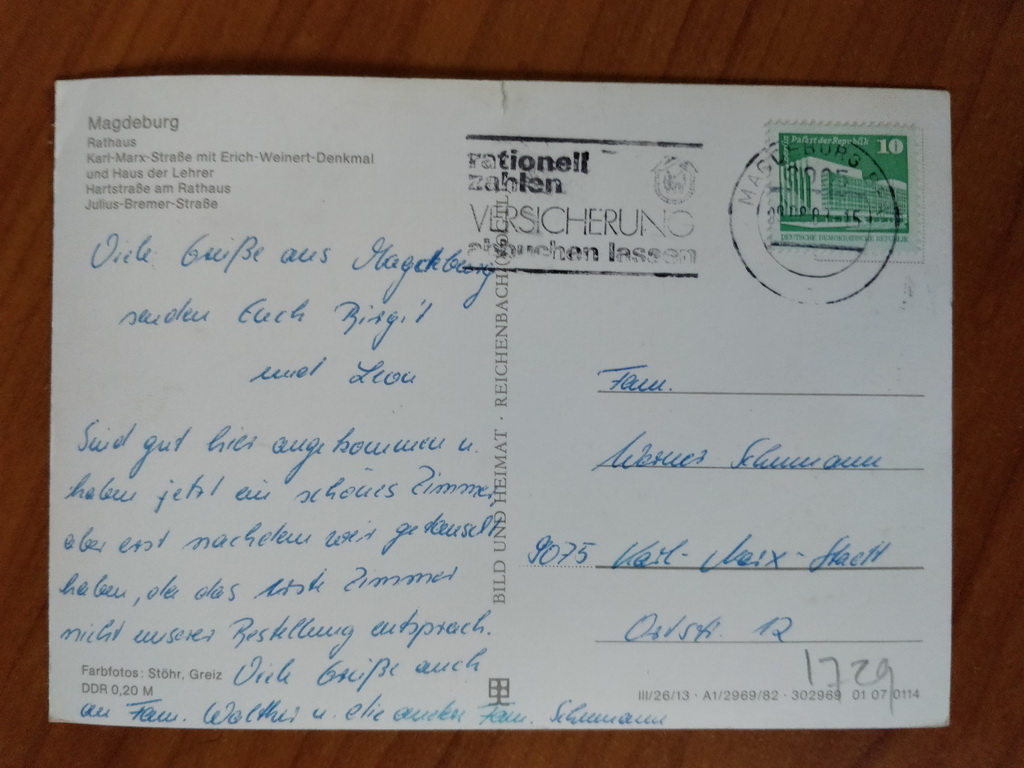 Magdeburg
Rathaus
Karl-Marx-Straße mit Erich-Weinert-Denkmal
und Haus der Lehrer
Hartstraße am Rathaus
Julius-Bremer-Straße
Viele Grüße aus Magdeburg
senden Euch Birgit
und Leon
Sind gut hier angekommen u.
haben jetzt ein schönes Zimmer,
aber erst nachdem wir getauscht
haben, da das erste Zimmer
nicht unserer Bestellung entsprach.
Viele Grüße auch
an Fam. Walther u. die anderen Fam. Schumann
Farbfotos: Stöhr, Greiz
DDR 0,20 M
BILD UND HEIMAT · REICHENBACH
rationell
zahlen
VERSICHERUNG
abbuchen lassen
MAGDEBURG
Palast der Republik
10
DEUTSCHE DEMOKRATISCHE REPUBLIK
Fam.
Werner Schumann
9075 Karl-Marx-Stadt
Oststr. 12
1729
III/26/13 · A1/2969/82 · 302969 01 07 0114